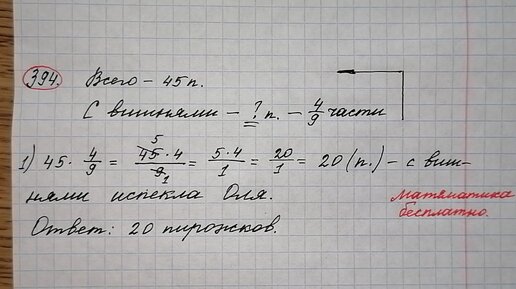 394. Всего – 45 п.
С вишнями – ? п. – 4/9 части
1) 45 · 4/9 = 45·4/9 = 5·4/1 = 20/1 = 20 (п.) – с виш-
нями испекла Оля.
Ответ: 20 пирожков.
Математика
бесплатно.